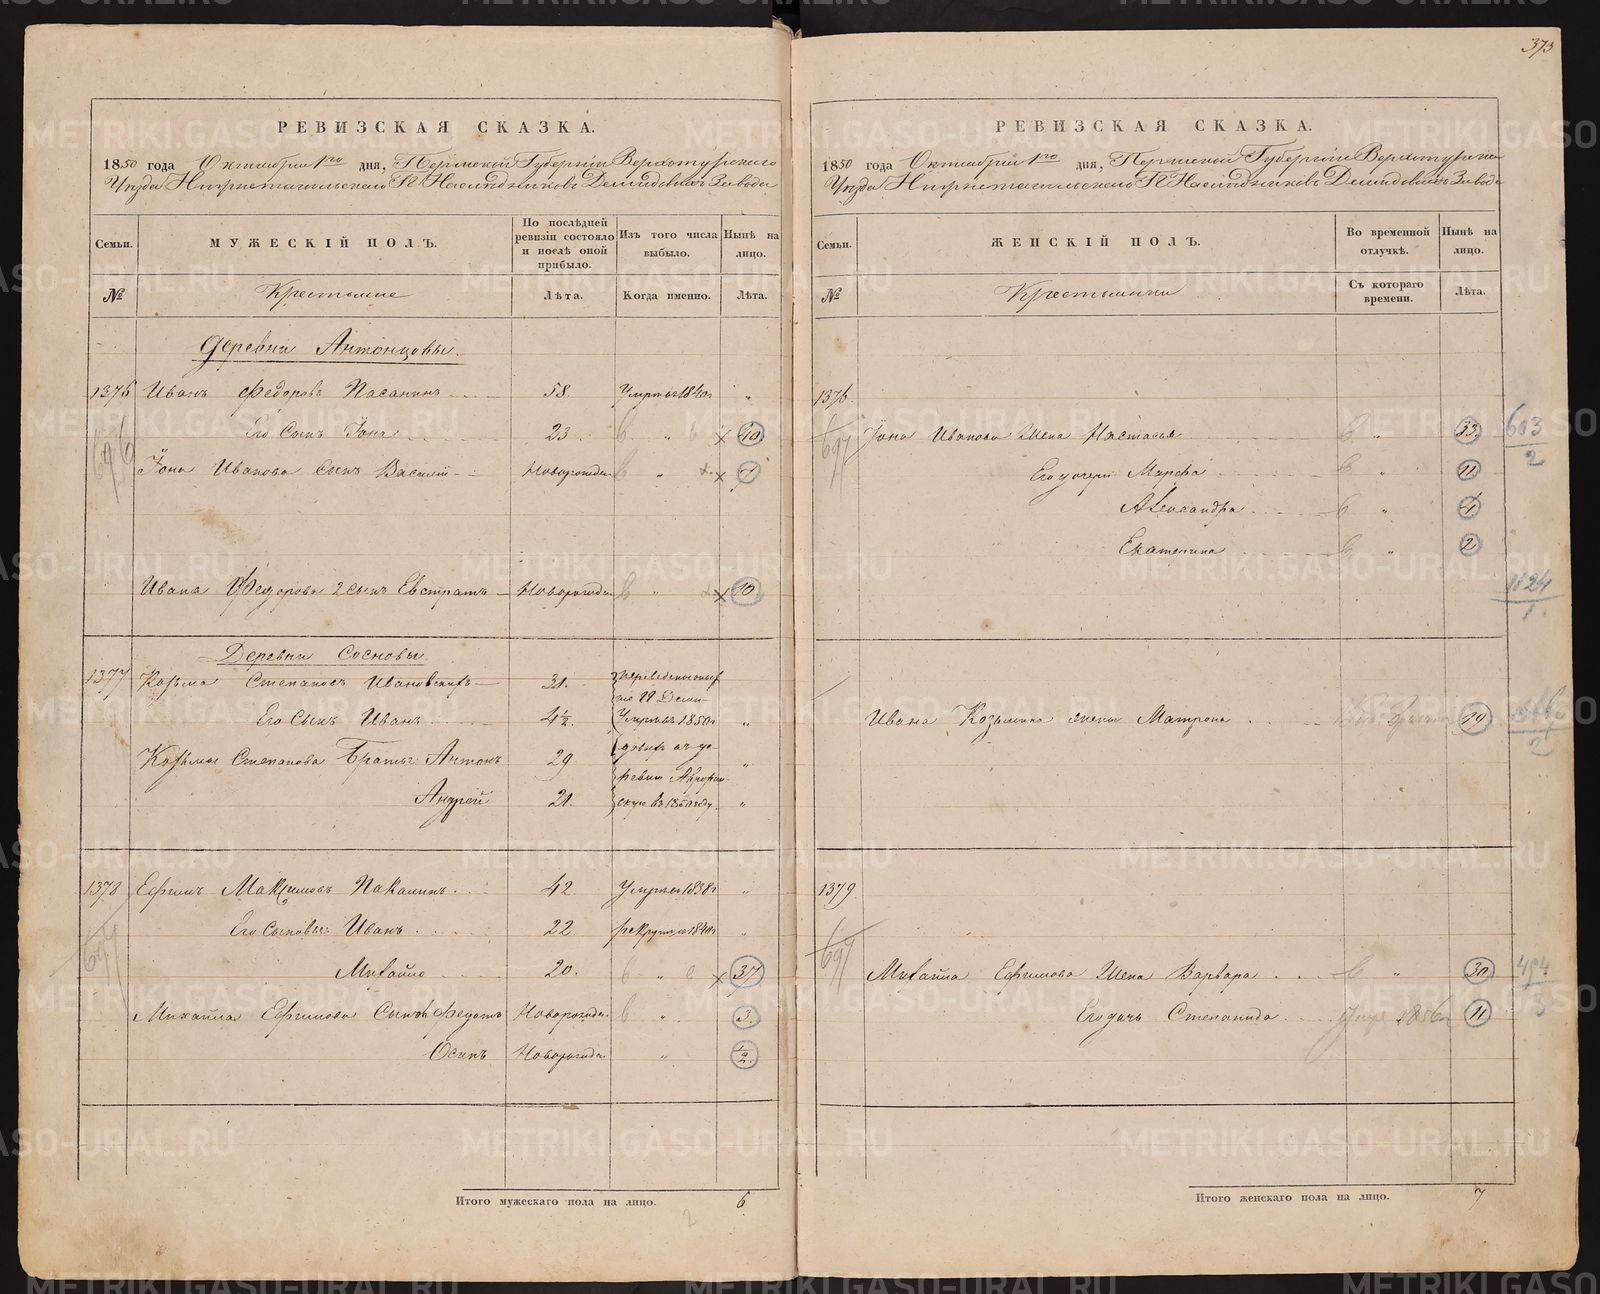 373
РЕВИЗСКАЯ СКАЗКА.
1850 года Октября 1го дня, Пермской Губернiи Верхотурскаго
Уѣзда Нижнетагильскаго Г. Наслѣдниковъ Демидовыхъ Завода
Семьи.
МУЖЕСКІЙ ПОЛЪ.
По послѣдней ревизіи состояло и послѣ оной прибыло.
Изъ того числа выбыло.
Нынѣ на лицо.
№ Крестьяне Лѣта. Когда именно. Лѣта.
Деревни Антонцовы
1376 Иванъ Федоровъ Пасанинъ 58. Умеръ въ 1840г "
Его Сынъ Iона 23 " 40
696
Iона Иванова Сынъ Василiй Новорожден " 1
Ивана Федорова 2 сынъ Евстратъ Новорожден " 10
Деревни Сосновы
1377 Козьма Степановъ Ивановскихъ 31.
Его Сынъ Иванъ 4½ Умеръ въ 1850г "
Козьмы Степанова Братья: Антонъ 29 "
Андрей 21. "
1378 Ефимъ Максимовъ Пакалинъ 42 Умеръ въ 1838г "
Его Сыновья: Иванъ 22 рекрутъ 1840г "
697
Михайло 20. " 37
Михайла Ефимова Сынъ Федотъ Новорожде " 3.
Осипъ Новорожде " ½
Итого мужескаго пола на лицо. 6
2
РЕВИЗСКАЯ СКАЗКА.
1850 года Октября 1го дня, Пермской Губернiи Верхотурска
Уѣзда Нижнетагильскаго Г. Наслѣдниковъ Демидовыхъ Завода
Семьи.
ЖЕНСКІЙ ПОЛЪ.
Во временной отлучкѣ.
Нынѣ на лицо.
№ Крестьянки Съ котораго времени. Лѣта.
1376
697 Iона Иванова Жена Настасья " 33 603
2
Его дочери Марфа " 11
Александра " 4
Екатерина " 2
1124
1
Ивана Козьмина жена Матрона 19
2
1379
697 Михайла Ефимова Жена Варвара " 30 454
3
Его дочь Степанида 1856 11
Итого женскаго пола на лицо. 7
METRIKI.GASO-URAL.RU